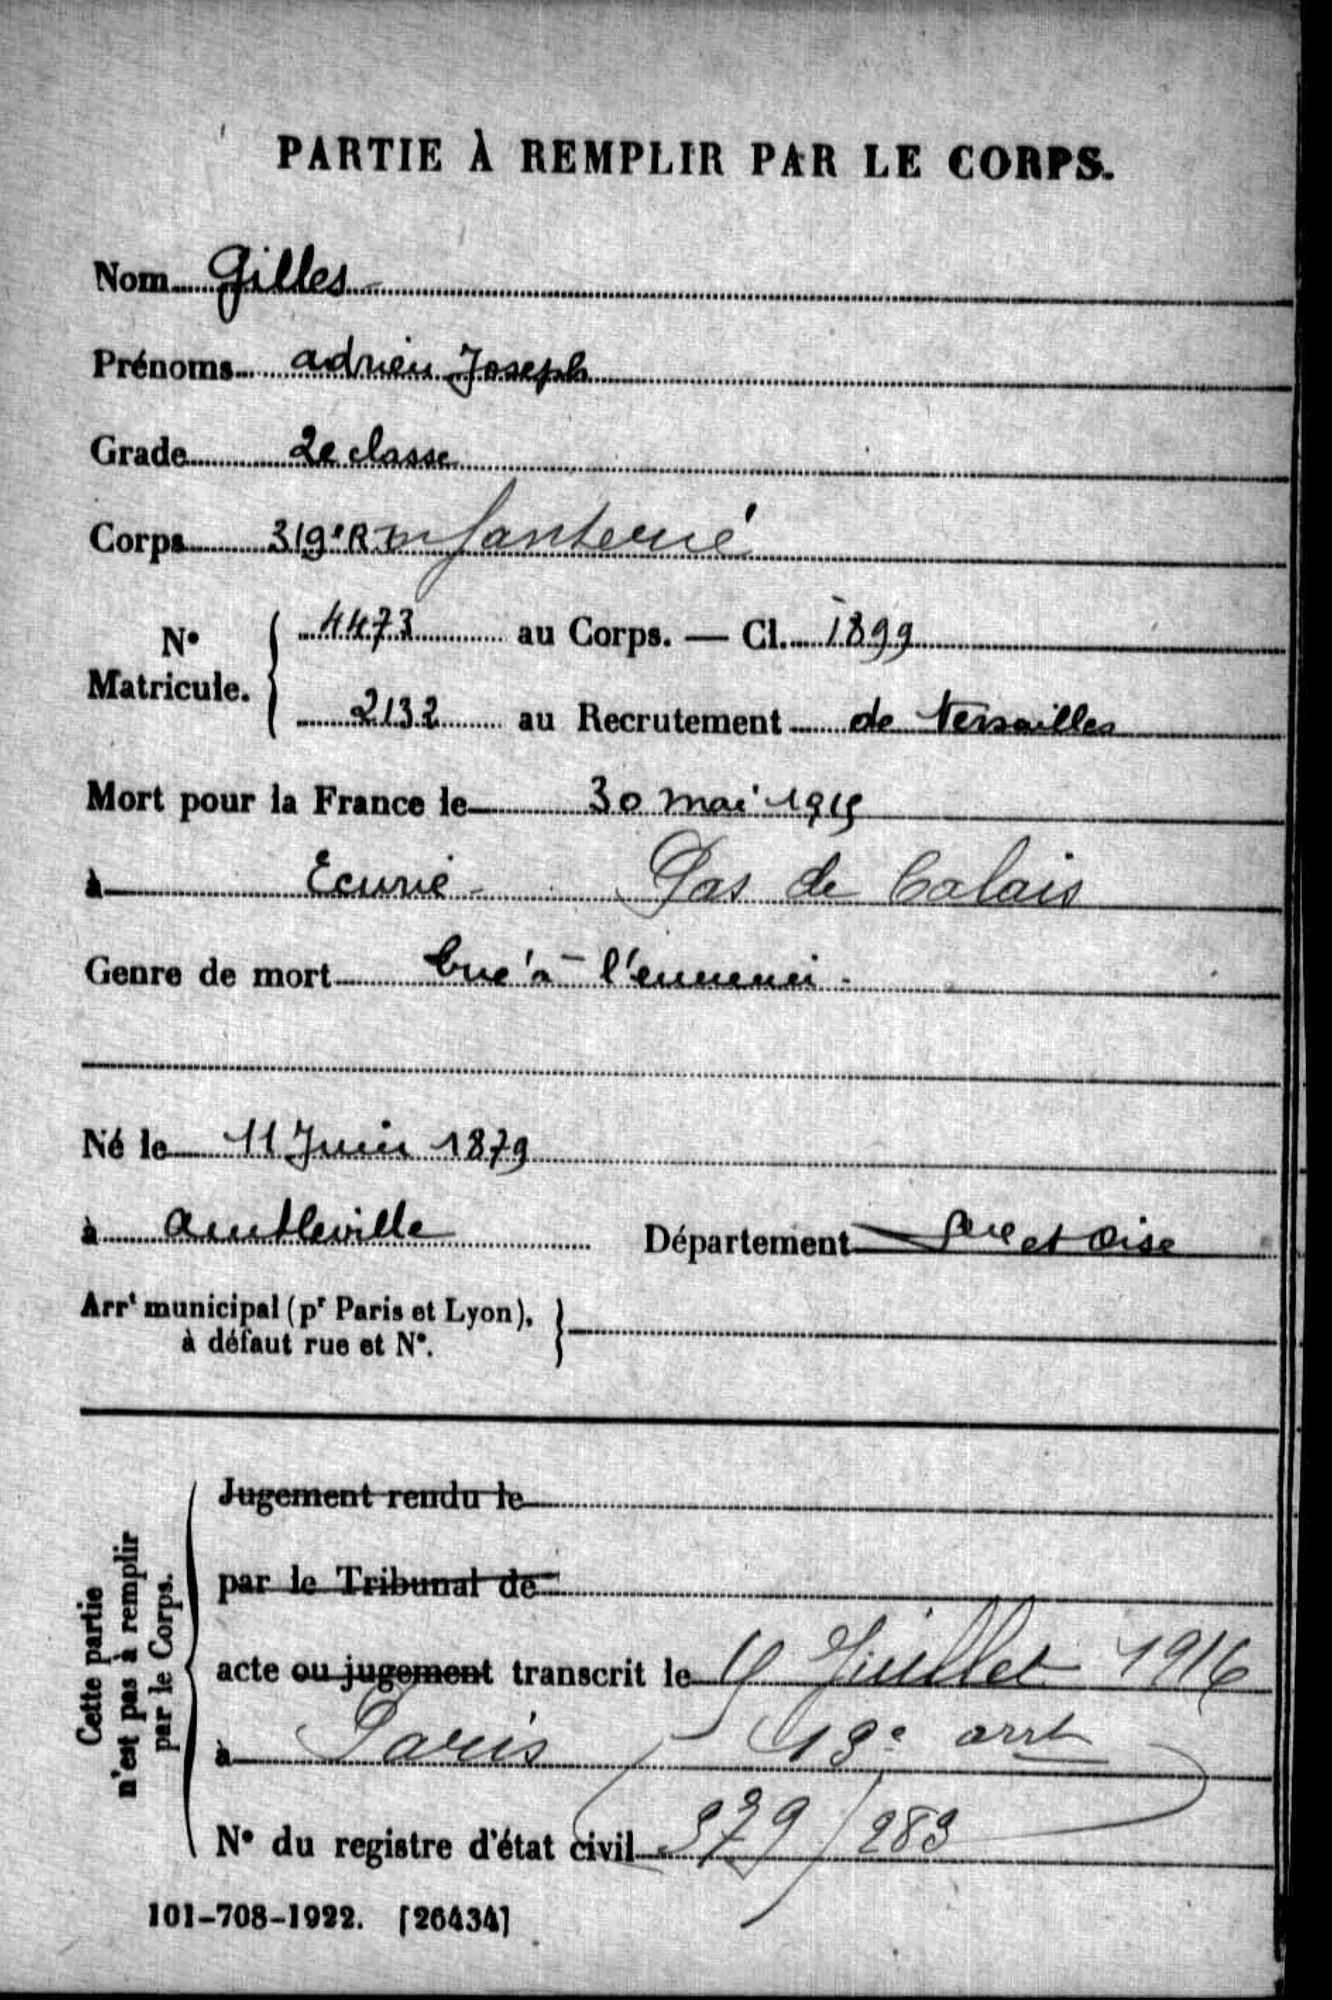 PARTIE À REMPLIR PAR LE CORPS.
Nom Gilles
Prénoms adrien Joseph
Grade 2e classe
Corps 319e R Infanterie
N° Matricule. 4473 au Corps. — Cl. 1899
2132 au Recrutement de Versailles
Mort pour la France le 30 mai 1915
à Ecurie - Pas de Calais
Genre de mort tué à l'ennemi -
Né le 11 Juin 1879
à Département Sne et Oise
Arrt municipal (pr Paris et Lyon), à défaut rue et N°.
Cette partie n'est pas à remplir par le Corps.
Jugement rendu le
par le Tribunal de
acte ou jugement transcrit le Juillet 1916
à Paris arrt
N° du registre d'état civil 379 / 283
101-708-1922. [26434]